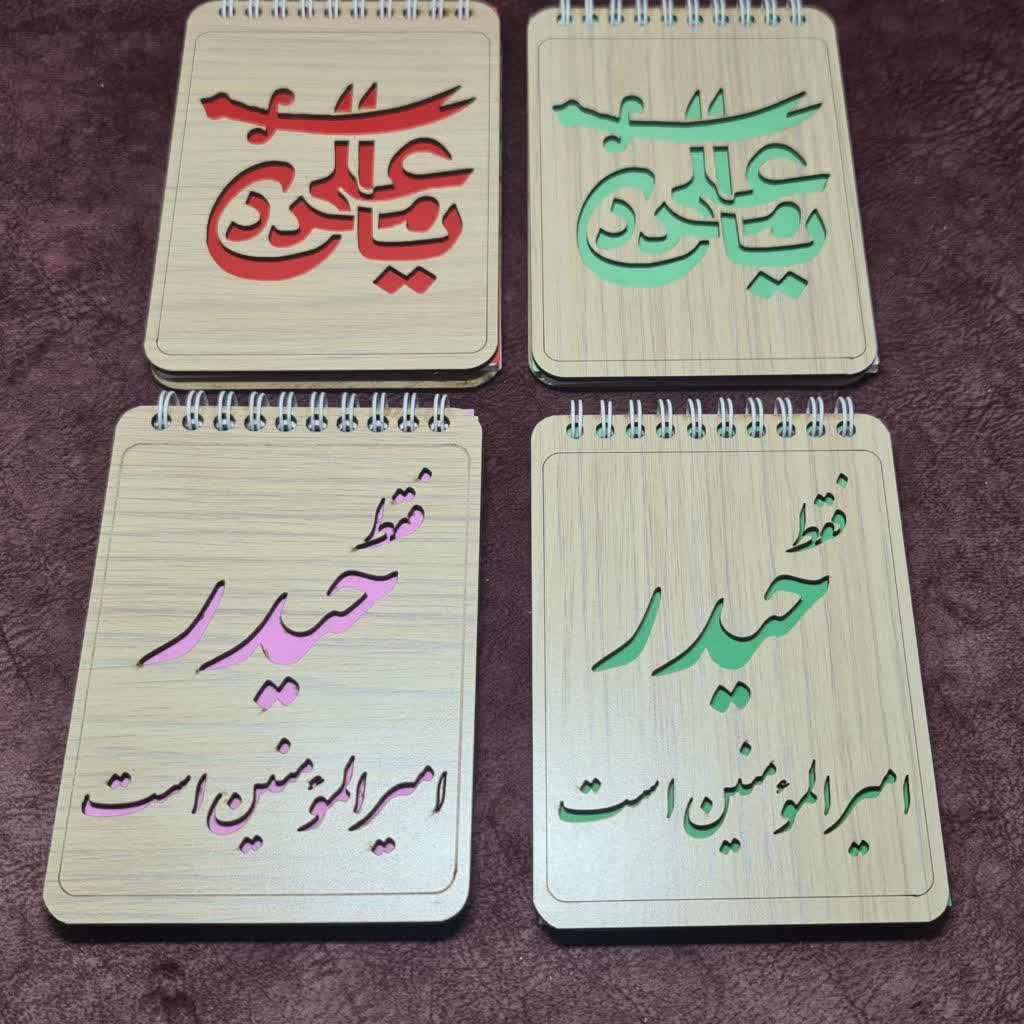 یا علی مدد
یا علی مدد
فقط
حیدر
امیرالمؤمنین است
فقط
حیدر
امیرالمؤمنین است